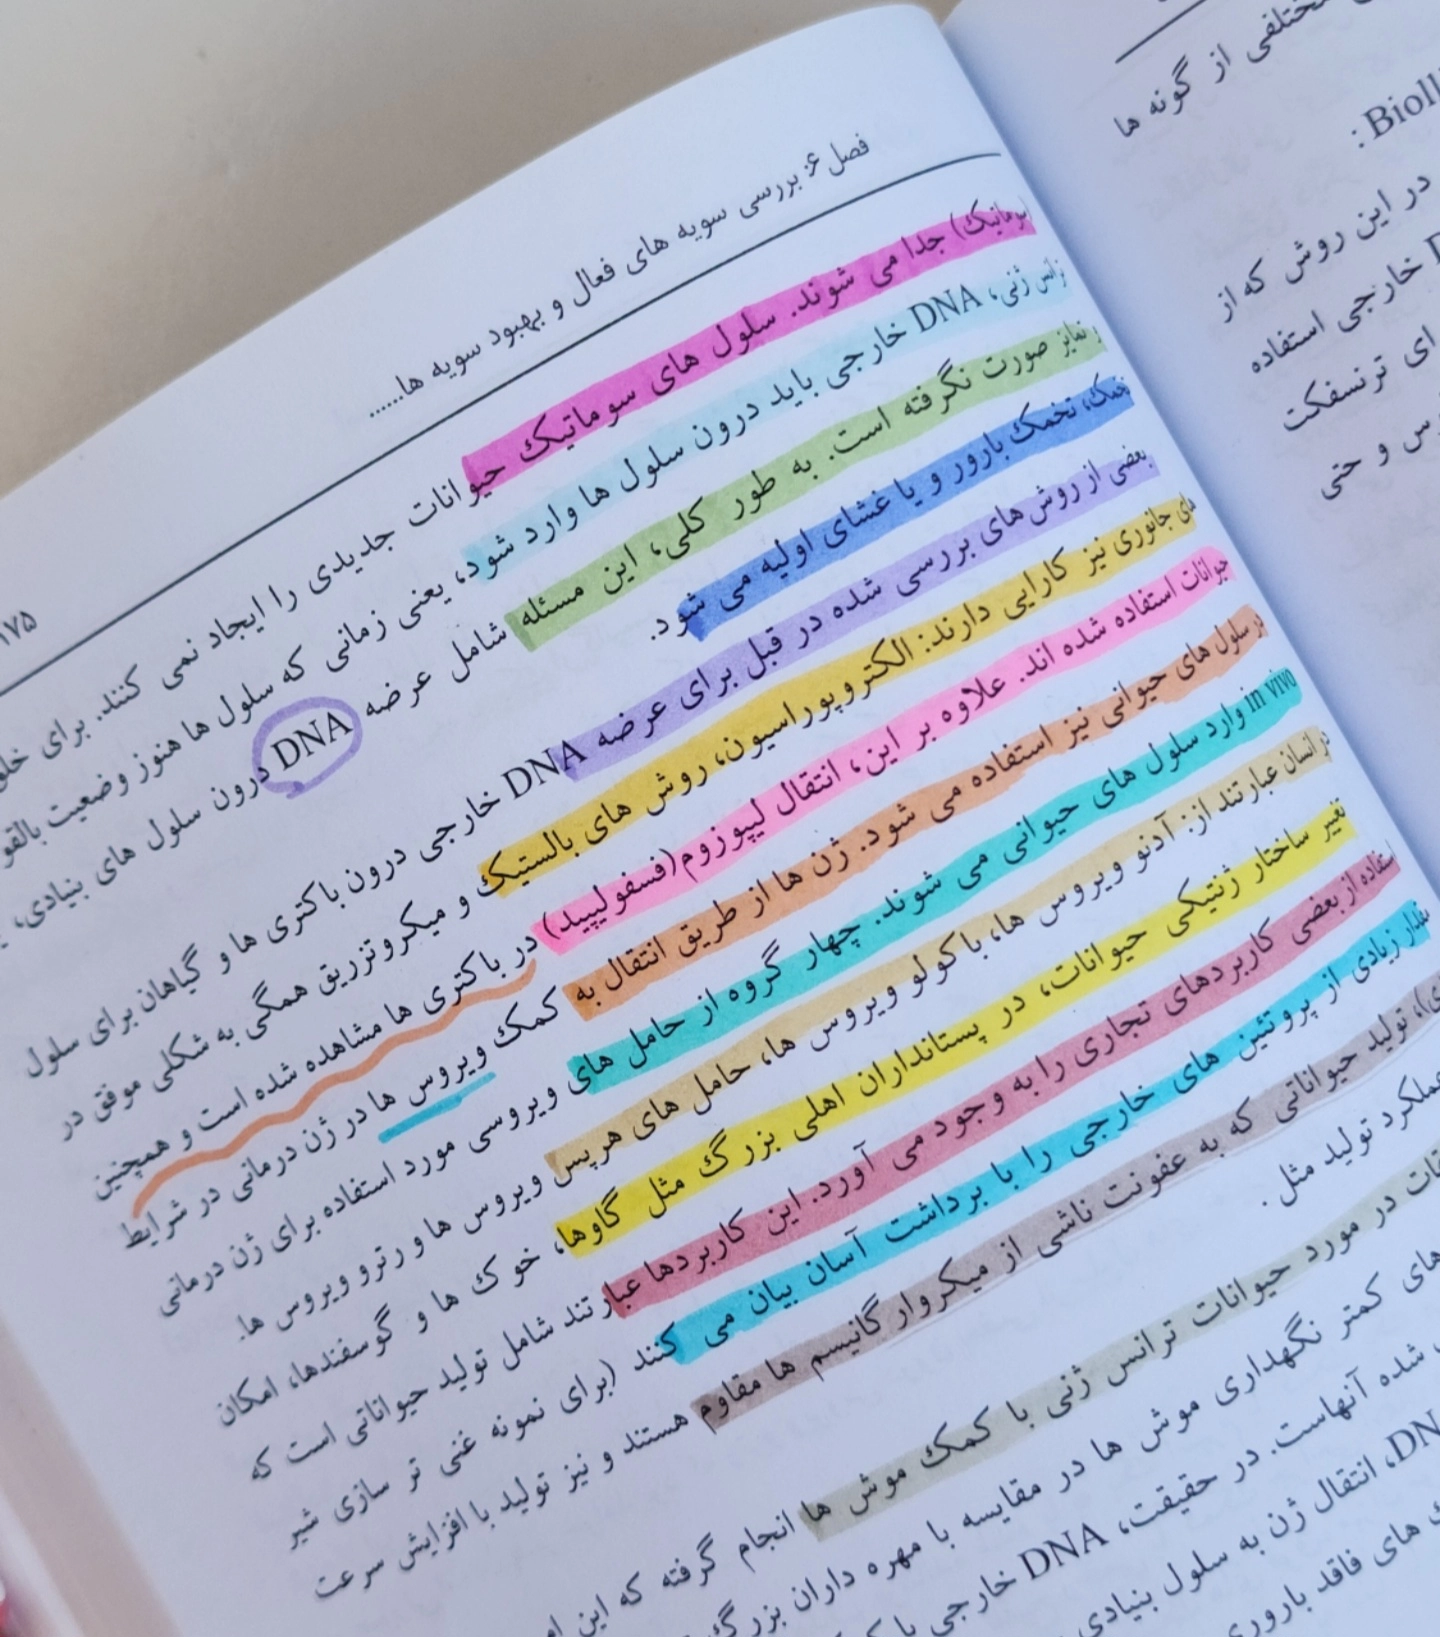 فصل ۶: بررسی سویه های فعال و بهبود سویه ها......
۱۷۵
سوماتیک) جدا می شوند. سلول های سوماتیک حیوانات جدیدی را ایجاد نمی کنند. برای
ترانس ژنی، DNA خارجی باید درون سلول ها وارد شود، یعنی زمانی که سلول ها هنوز وضعیت
و تمایز صورت نگرفته است. به طور کلی، این مسئله شامل عرضه DNA درون سلول های بنیادی،
تخمک، تخمک بارور و یا غشای اولیه می شود.
بعضی از روش های بررسی شده در قبل برای عرضه DNA خارجی درون باکتری ها و گیاهان برای سلول
های جانوری نیز کارایی دارند: الکتروپوراسیون، روش های بالستیک و میکروتزریق همگی به شکلی موفق در
حیوانات استفاده شده اند. علاوه بر این، انتقال لیپوزوم(فسفولیپید) در باکتری ها مشاهده شده است و همچنین
در سلول های حیوانی نیز استفاده می شود. ژن ها از طریق انتقال به کمک ویروس ها در ژن درمانی در شرایط
in vivo وارد سلول های حیوانی می شوند. چهار گروه از حامل های ویروسی مورد استفاده برای ژن درمانی
در انسان عبارتند از: آدنو ویروس ها، باکولو ویروس ها، حامل های هرپس ویروس ها و رترو ویروس ها.
تغییر ساختار ژنتیکی حیوانات، در پستانداران اهلی بزرگ مثل گاوها، خوک ها و گوسفندها، امکان
استفاده از بعضی کاربردهای تجاری را به وجود می آورد. این کاربردها عبارتند شامل تولید حیواناتی است که
مقدار زیادی از پروتئین های خارجی را با برداشت آسان بیان می کنند (برای نمونه غنی تر سازی شیر
تولید حیواناتی که به عفونت ناشی از میکروارگانیسم ها مقاوم هستند و نیز تولید با افزایش سرعت
عملکرد تولید مثل.
در مورد حیوانات ترانس ژنی با کمک موش ها انجام گرفته که این
های کمتر نگهداری موش ها در مقایسه با مهره داران بزرگ
شده آنهاست. در حقیقت، DNA خارجی با
انتقال ژن به سلول بنیادی
های فاقد باروری
مختلفی از گونه ها
در این روش که از
خارجی استفاده
ای ترنسفکت
و حتی